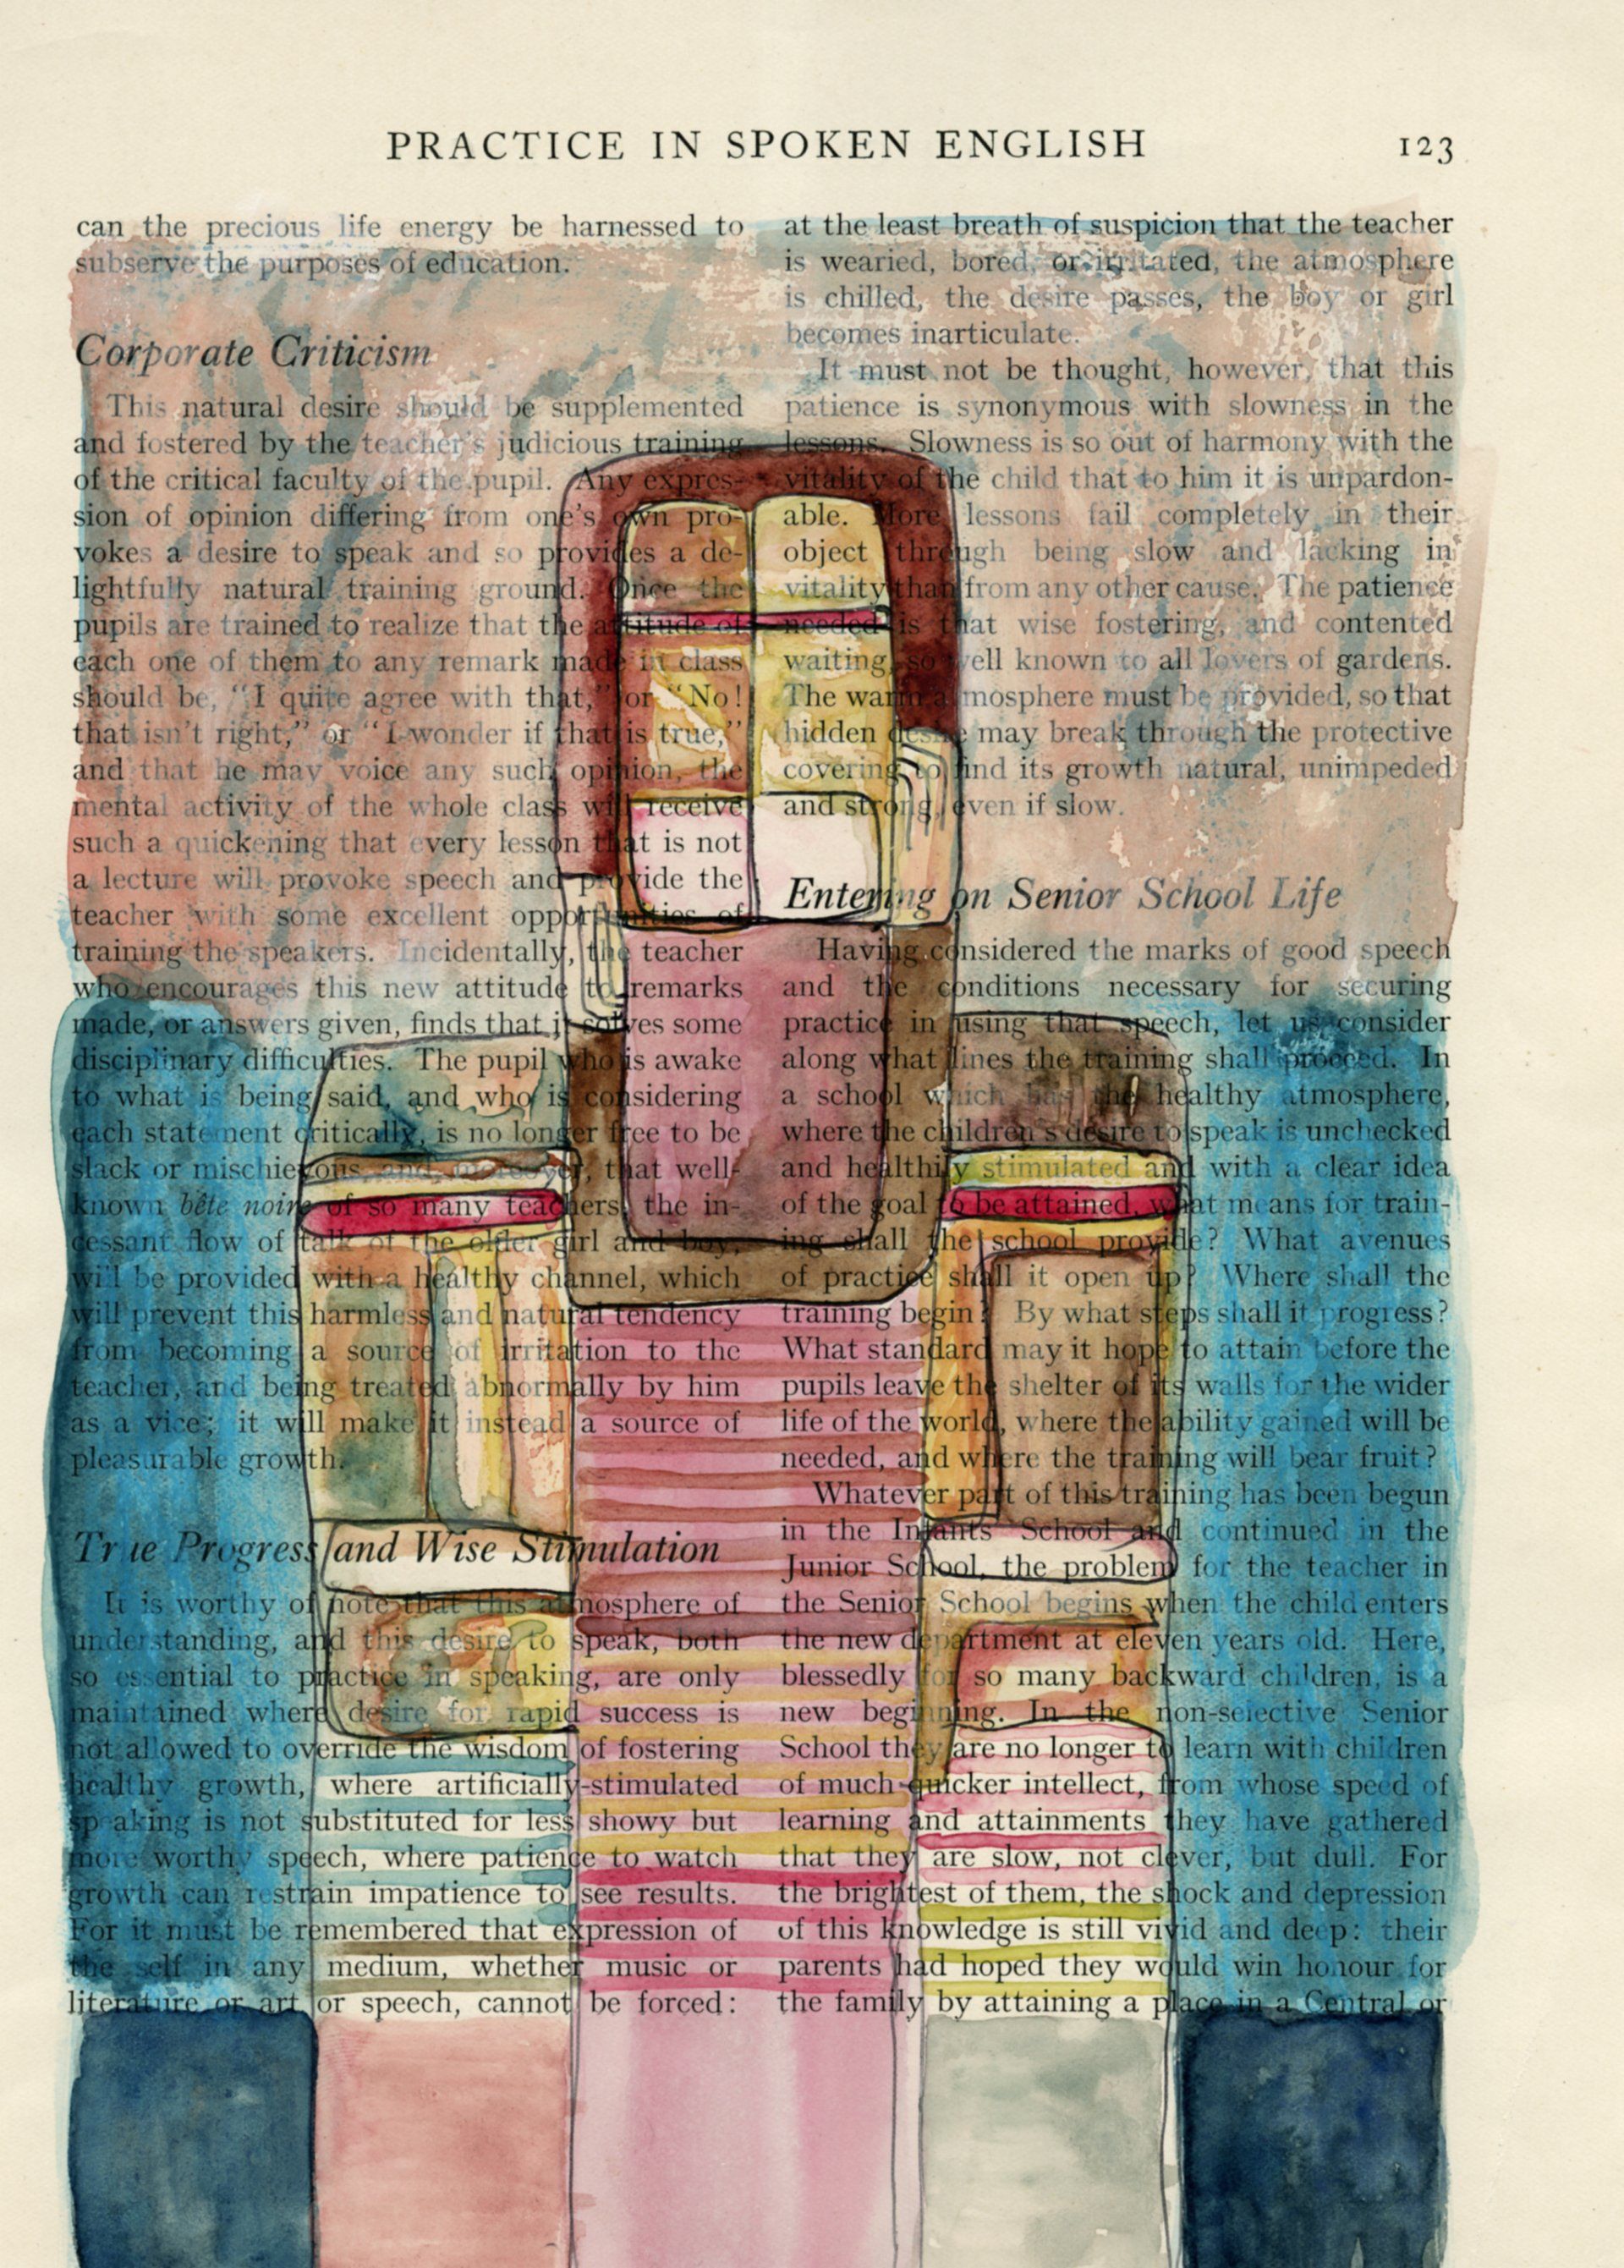 PRACTICE IN SPOKEN ENGLISH 123
can the precious life energy be harnessed to
subserve the purposes of education.
Corporate Criticism
This natural desire should be supplemented
and fostered by the teacher's judicious training
of the critical faculty of the pupil. Any expres-
sion of opinion differing from one's own pro-
vokes a desire to speak and so provides a de-
lightfully natural training ground. Once the
pupils are trained to realize that the attitude of
each one of them to any remark made in class
should be, "I quite agree with that," or "No!
that isn't right," or "I wonder if that is true,"
and that he may voice any such opinion, the
mental activity of the whole class will receive
such a quickening that every lesson that is not
a lecture will provoke speech and provide the
teacher with some excellent opportunities of
training the speakers. Incidentally, the teacher
who encourages this new attitude to remarks
made, or answers given, finds that it solves some
disciplinary difficulties. The pupil who is awake
to what is being said, and who is considering
each statement critically, is no longer free to be
slack or mischievous, and, moreover, that well-
known bête noire of so many teachers, the in-
cessant flow of talk of the older girl and boy,
will be provided with a healthy channel, which
will prevent this harmless and natural tendency
from becoming a source of irritation to the
teacher, and being treated abnormally by him
as a vice; it will make it instead a source of
pleasurable growth.
True Progress and Wise Stimulation
It is worthy of note that this atmosphere of
understanding, and this desire to speak, both
so essential to practice in speaking, are only
maintained where desire for rapid success is
not allowed to override the wisdom of fostering
healthy growth, where artificially-stimulated
speaking is not substituted for less showy but
more worthy speech, where patience to watch
growth can restrain impatience to see results.
For it must be remembered that expression of
the self in any medium, whether music or
literature or art or speech, cannot be forced:
at the least breath of suspicion that the teacher
is wearied, bored, or irritated, the atmosphere
is chilled, the desire passes, the boy or girl
becomes inarticulate.
It must not be thought, however, that this
patience is synonymous with slowness in the
lessons. Slowness is so out of harmony with the
vitality of the child that to him it is unpardon-
able. More lessons fail completely in their
object through being slow and lacking in
vitality than from any other cause. The patience
needed is that wise fostering, and contented
waiting, so well known to all lovers of gardens.
The warm atmosphere must be provided, so that
hidden desire may break through the protective
covering to find its growth natural, unimpeded
and strong, even if slow.
Entering on Senior School Life
Having considered the marks of good speech
and the conditions necessary for securing
practice in using that speech, let us consider
along what lines the training shall proceed. In
a school which has the healthy atmosphere,
where the children's desire to speak is unchecked
and healthily stimulated and with a clear idea
of the goal to be attained, what means for train-
ing shall the school provide? What avenues
of practice shall it open up? Where shall the
training begin? By what steps shall it progress?
What standard may it hope to attain before the
pupils leave the shelter of its walls for the wider
life of the world, where the ability gained will be
needed, and where the training will bear fruit?
Whatever part of this training has been begun
in the Infants' School and continued in the
Junior School, the problem for the teacher in
the Senior School begins when the child enters
the new department at eleven years old. Here,
blessedly for so many backward children, is a
new beginning. In the non-selective Senior
School they are no longer to learn with children
of much quicker intellect, from whose speed of
learning and attainments they have gathered
that they are slow, not clever, but dull. For
the brightest of them, the shock and depression
of this knowledge is still vivid and deep: their
parents had hoped they would win honour for
the family by attaining a place in a Central or